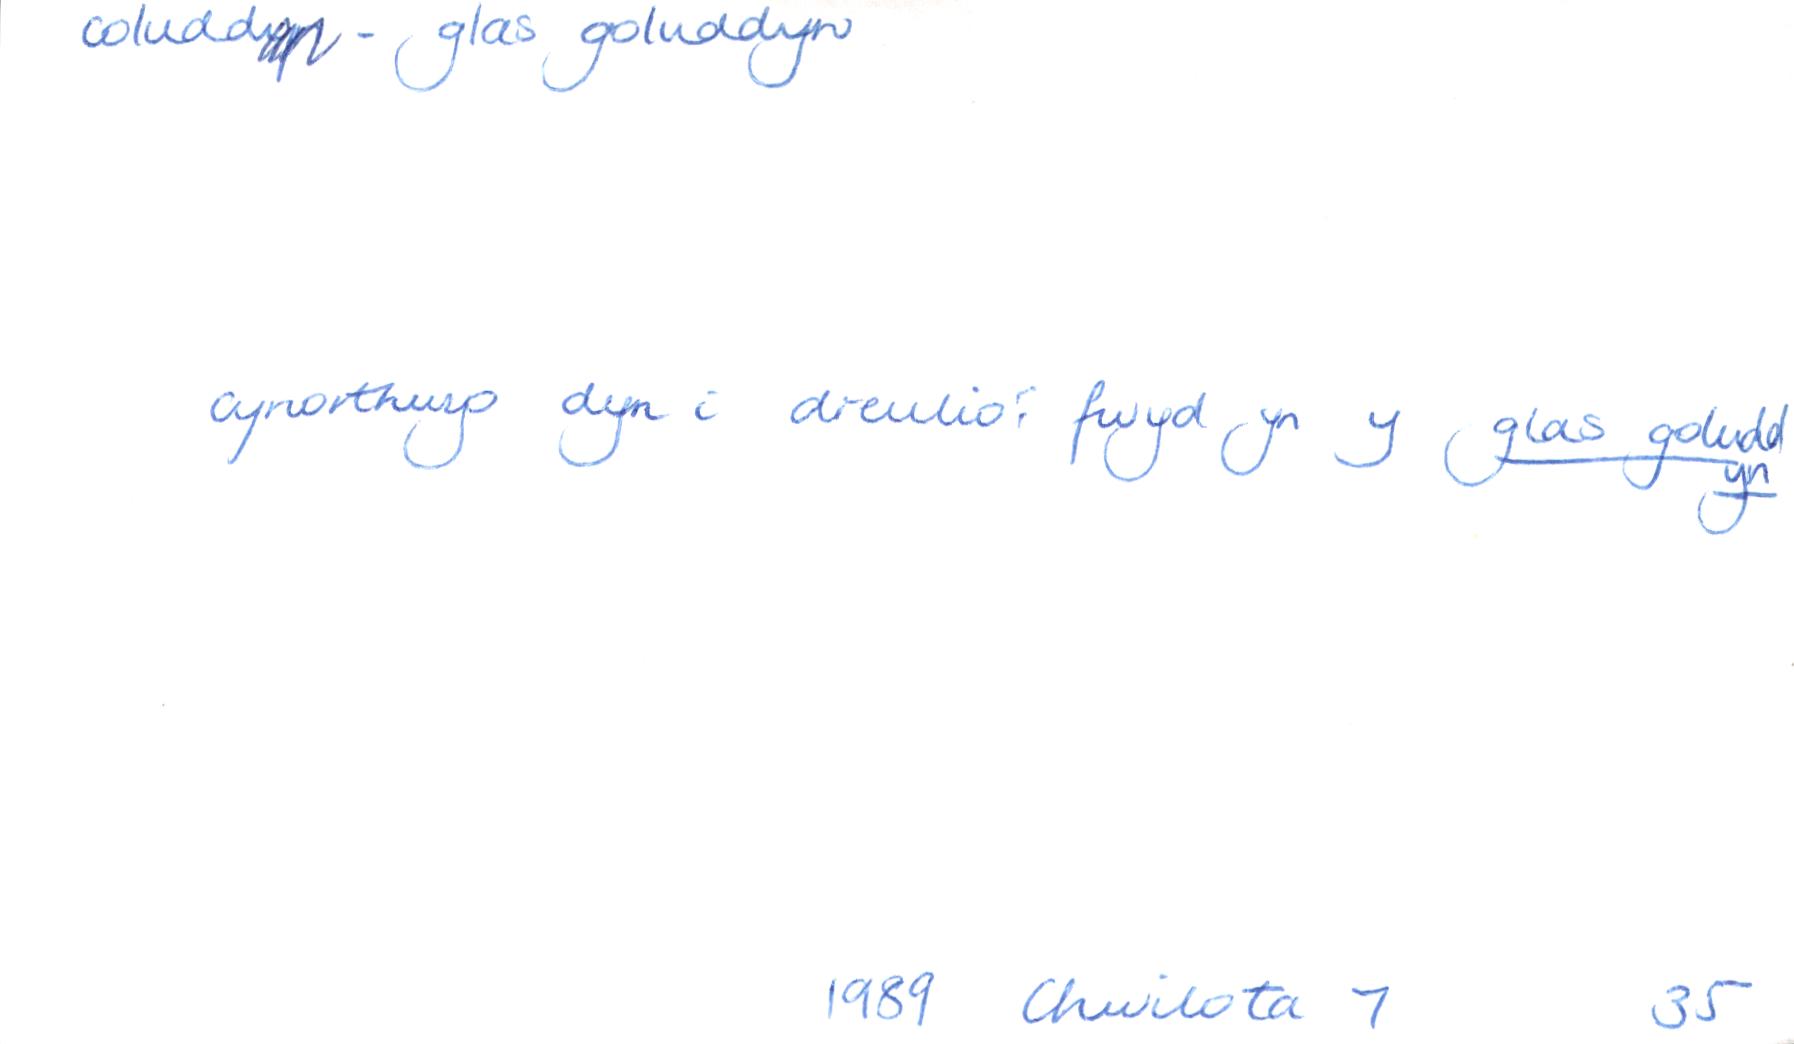 coluddyn - glas goluddyn
cynorthwyo dyn i dreulio'i fwyd yn y glas goludd
yn
1989 Chwilota 7 35